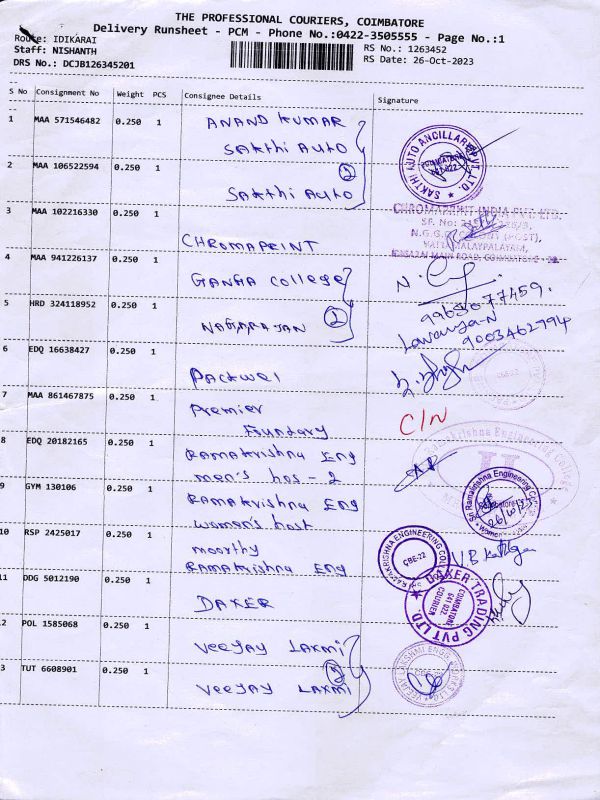 THE PROFESSIONAL COURIERS, COIMBATORE
Delivery Runsheet - PCM - Phone No.:0422-3505555 - Page No.:1
Route: IDIKARAI
RS No.: 1263452
Staff: NISHANTH
RS Date: 26-Oct-2023
DRS No.: DCJB126345201
S No Consignment No Weight PCS Consignee Details Signature
1 MAA 571546482 0.250 1 ANAND KUMAR
Sakthi Auto
2 MAA 106522594 0.250 1 Sakthi Auto 2
SAKTHI AUTO ANCILLARY PVT. LTD.
3 MAA 102216330 0.250 1 CHROMAPRINT
CHROMAPRINT INDIA PVT. LTD.
4 MAA 941226137 0.250 1 GANGA College
N.
9963077459.
5 HRD 324118952 0.250 1 NAGARAJAN 2
Lavanya-N
9003462994
6 EDQ 16638427 1 Packwel
0.250
7 MAA 861467875 1 Premier
0.250 Foundary
C/N
8 EDQ 20182165 0.250 1 Ramakrishna Eng
men's hos - 2
9 GYM 130106 0.250 1 Ramakrishna Eng
women's host
Sri Ramakrishna Engineering
26/10/23
10 RSP 2425017 0.250 1 moorthy
Ramakrishna Eng
CBE-22
11 DDG 5012190 0.250 1 DAXER
DAXER TRADING PVT LTD.
COIMBATORE
641 022.
COURIER
2 POL 1585068 0.250 1 Veejay Laxmi
3 TUT 6608901 0.250 1 Veejay Laxmi 2